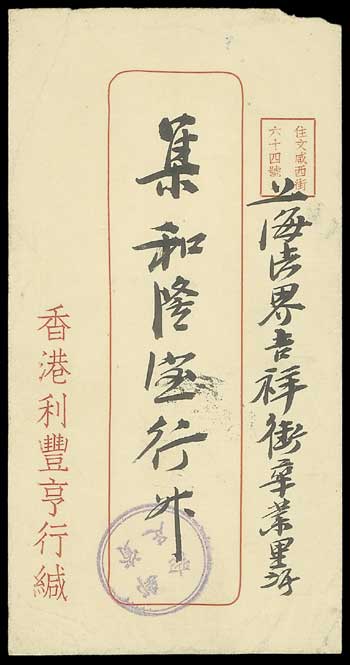 住文咸西街
六十四號
上海法界吉祥街業里
集和隆宝行升
香港利豐亨行緘